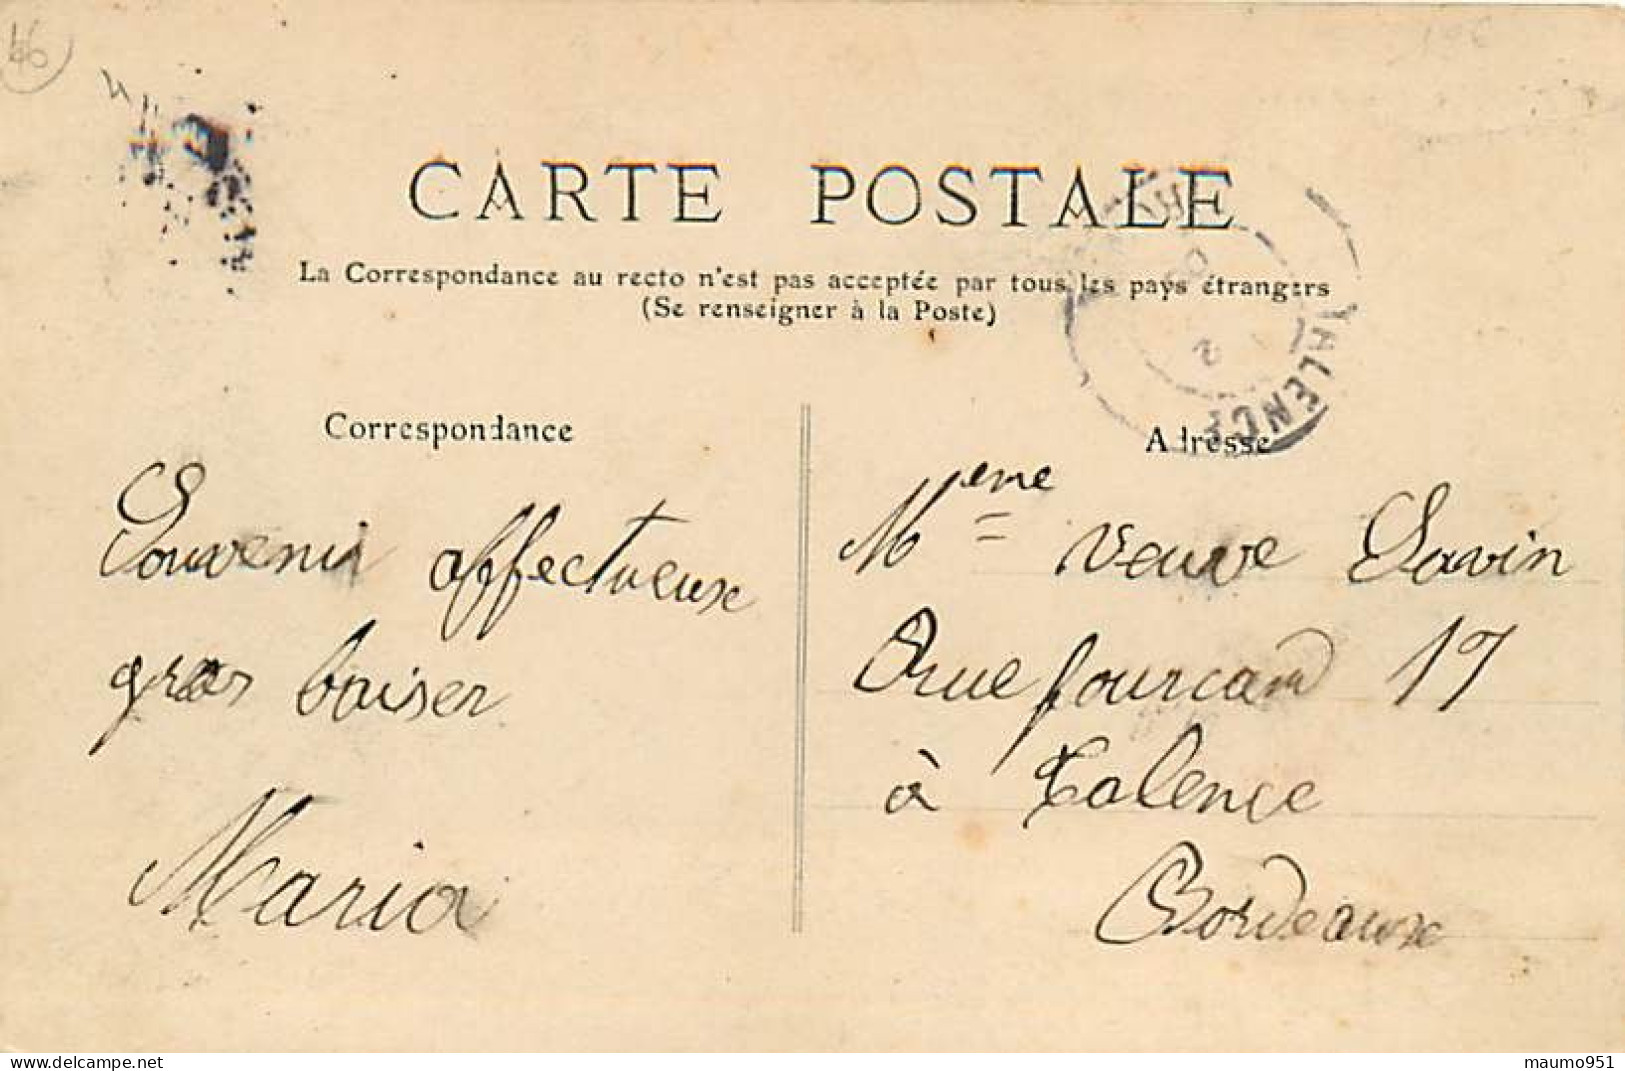 46
CARTE POSTALE
La Correspondance au recto n'est pas acceptée par tous les pays étrangers
(Se renseigner à la Poste)
TALENCE
2
Correspondance
Souvenir affectueux
gros baiser
Maria
Adresse
Meme veuve Savin
Rue fourcand 17
à Talence
Bordeaux
delcampe.net
maumo951